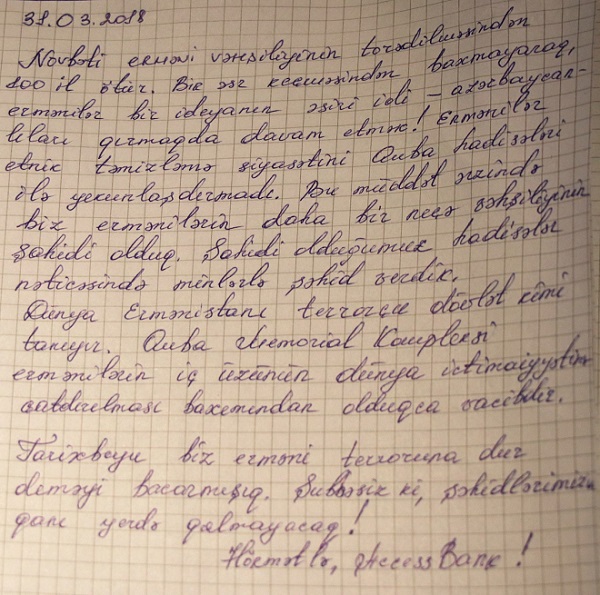 31.03.2018
Növbəti erməni vəhşiliyinin törədilməsindən
100 il ötür. Bir əsr keçməsindən baxmayaraq,
ermənilər bir ideyanın əsiri idi – azərbaycan-
lıları qırmaqda davam etmək! Ermənilər
etnik təmizləmə siyasətini Quba hadisələri
ilə yekunlaşdırmadı. Bu müddət ərzində
biz ermənilərin daha bir neçə vəhşiliyinin
şahidi olduq. Şahidi olduğumuz hadisələr
nəticəsində minlərlə şəhid verdik.
Dünya Ermənistanı terrorçu dövlət kimi
tanıyır. Quba Memorial Kompleksi
ermənilərin iç üzünün dünya ictimaiyyətinə
çatdırılması baxımından olduqca vacibdir.
Tarixboyu biz erməni terroruna dur
deməyi bacarmışıq. Şübhəsiz ki, şəhidlərimizin
qanı yerdə qalmayacaq!
Hörmətlə, AccessBank!